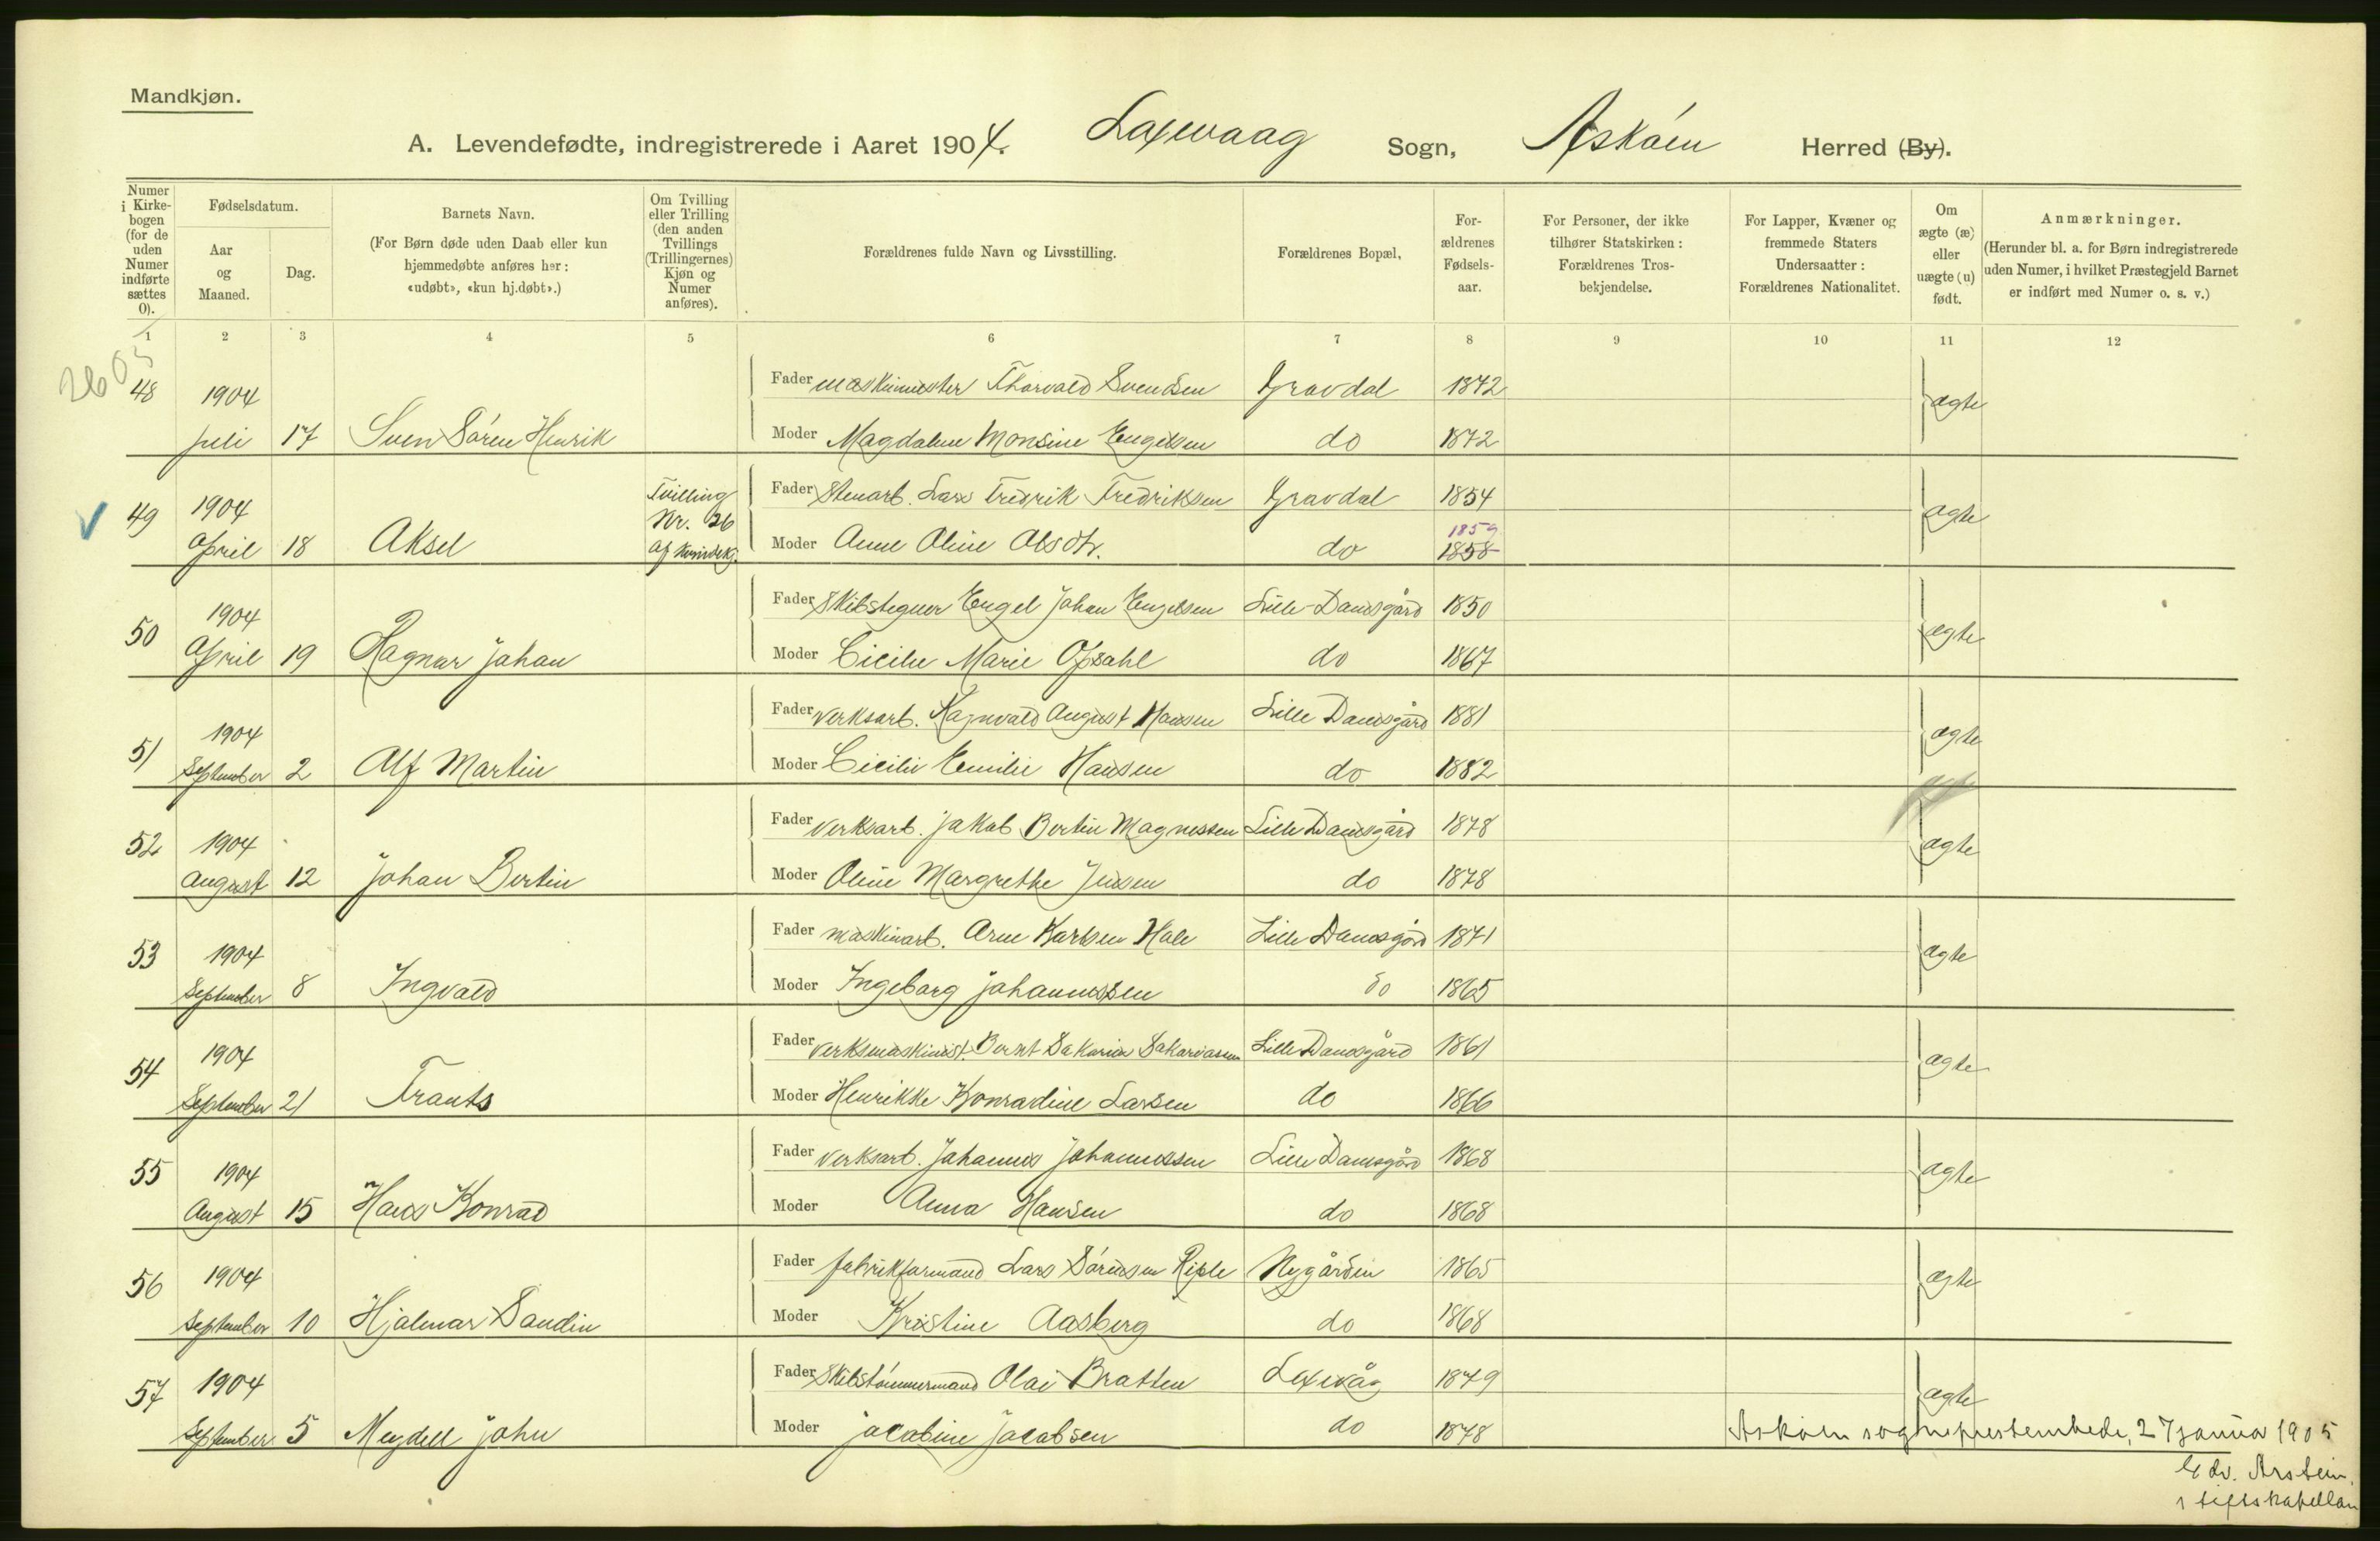 Mandkjøn.
A. Levendefødte, indregistrerede i Aaret 1904. Laxevaag Sogn, Askøen Herred (By).
Numer i Kirkebogen (for de uden Numer indførte sættes 0).
Fødselsdatum.
Aar og Maaned.
Dag.
Barnets Navn.
(For Børn døde uden Daab eller kun hjemmedøbte anføres her: «udøbt», «kun hj.døbt».)
Om Tvilling eller Trilling (den anden Tvillings (Trillingernes) Kjøn og Numer anføres).
Forældrenes fulde Navn og Livsstilling.
Forældrenes Bopæl,
Forældrenes Fødselsaar.
For Personer, der ikke tilhører Statskirken: Forældrenes Trosbekjendelse.
For Lapper, Kvæner og fremmede Staters Undersaatter: Forældrenes Nationalitet.
Om ægte (æ) eller uægte (u) født.
Anmærkninger.
(Herunder bl. a. for Børn indregistrerede uden Numer, i hvilket Præstegjeld Barnet er indført med Numer o. s. v.)
1 2 3 4 5 6 7 8 9 10 11 12
2603
48 1904 Fader maskinmester Thorvald Svendsen Gravdal 1872 ægte
juli 17 Sven Søren Henrik Moder Magdalene Monsine Engelsen do 1872
49 1904 Tvilling Nr. 26 af kvindekj. Fader Stenarb. Lars Fredrik Fredriksen Gravdal 1854 ægte
April 18 Aksel Moder Anne Oline Olsdtr. do 1858 1859
50 1904 Fader Skibstegner Engel Johan Engelsen Lille-Damsgård 1850 ægte
April 19 Ragnar Johan Moder Cicilie Marie Opsahl do 1867
51 1904 Fader Verksarb. Ragnvald August Hansen Lille Damsgård 1881 ægte
September 2 Alf Martin Moder Cicilie Emilie Hansen do 1882
52 1904 Fader Verksarb. Jakob Bertin Magnessen Lille Damsgård 1878 ægte
August 12 Johan Bertin Moder Oline Margrethe Jensen do 1878
53 1904 Fader maskinarb. Arne Karlsen Hole Lille Damsgård 1871 ægte
September 8 Ingvald Moder Ingeborg Johannessen do 1865
54 1904 Fader Verksmaskinist. Bernt Sakarias Sakariassen Lille Damsgård 1861 ægte
September 21 Frants Moder Henrikke Konradine Larsen do 1866
55 1904 Fader Verksarb. Johannes Johannessen Lille Damsgård 1868 ægte
August 15 Hans Konrad Moder Anna Hansen do 1868
56 1904 Fader fabrikformand Lars Sørensen Riple Nygården 1865 ægte
September 10 Hjalmar Sandin Moder Kristine Aasberg do 1868
57 1904 Fader Skibstømmermand Olai Bratten Laxevåg 1879 ægte
September 5 Meydell John Moder Jacobine Jacobsen do 1878
Askøens sogneprestembede, 27 januar 1905
Edv. Arstein,
stiftskapellan